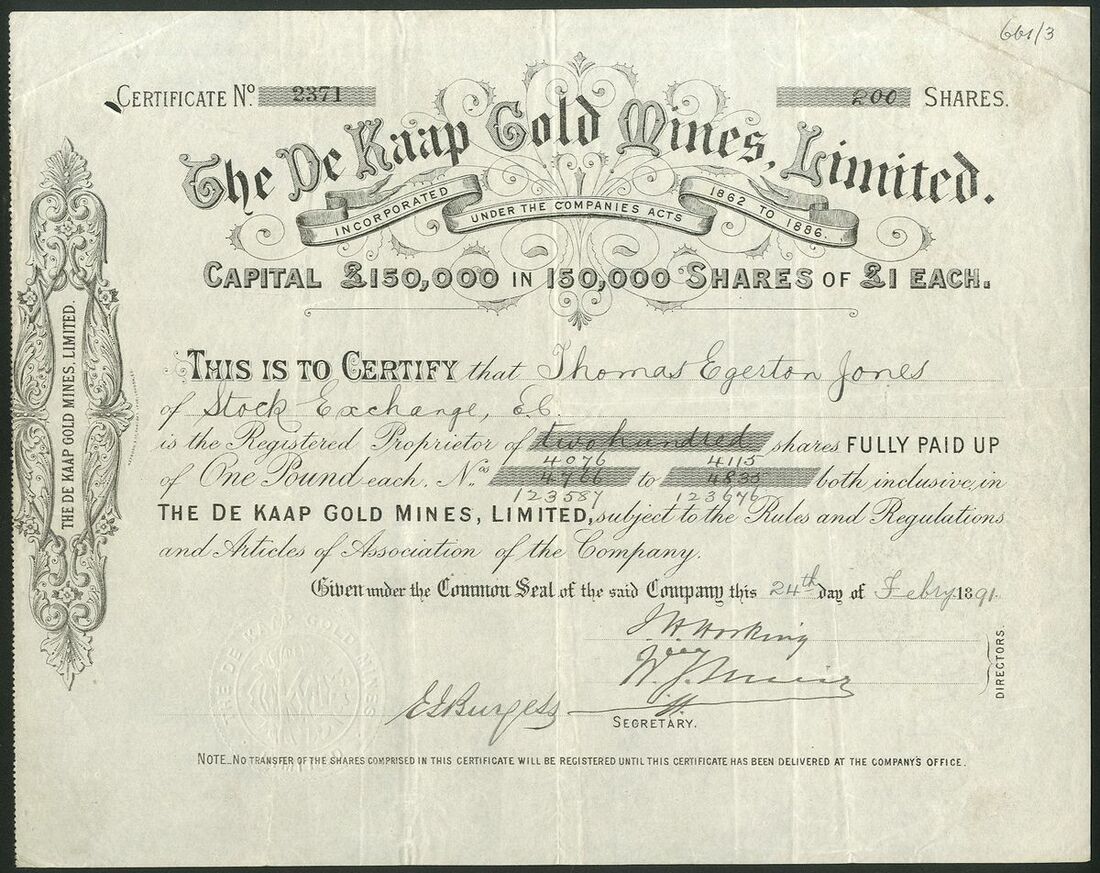 661/3
CERTIFICATE No. 2371
200 SHARES.
The De Kaap Gold Mines, Limited.
INCORPORATED UNDER THE COMPANIES ACTS 1862 TO 1886.
CAPITAL £150,000 IN 150,000 SHARES OF £1 EACH.
THE DE KAAP GOLD MINES, LIMITED.
THIS IS TO CERTIFY that Thomas Egerton Jones
of Stock Exchange, E.C.
is the Registered Proprietor of two hundred shares FULLY PAID UP
4076 4115
of One Pound each. Nos. 4966 to both inclusive, in
123587 123676
THE DE KAAP GOLD MINES, LIMITED, subject to the Rules and Regulations
and Articles of Association of the Company.
Given under the Common Seal of the said Company this 24th day of Febry. 1891.
DIRECTORS.
E J Burgess
SECRETARY.
THE DE KAAP GOLD MINES
NOTE_NO TRANSFER OF THE SHARES COMPRISED IN THIS CERTIFICATE WILL BE REGISTERED UNTIL THIS CERTIFICATE HAS BEEN DELIVERED AT THE COMPANY'S OFFICE.